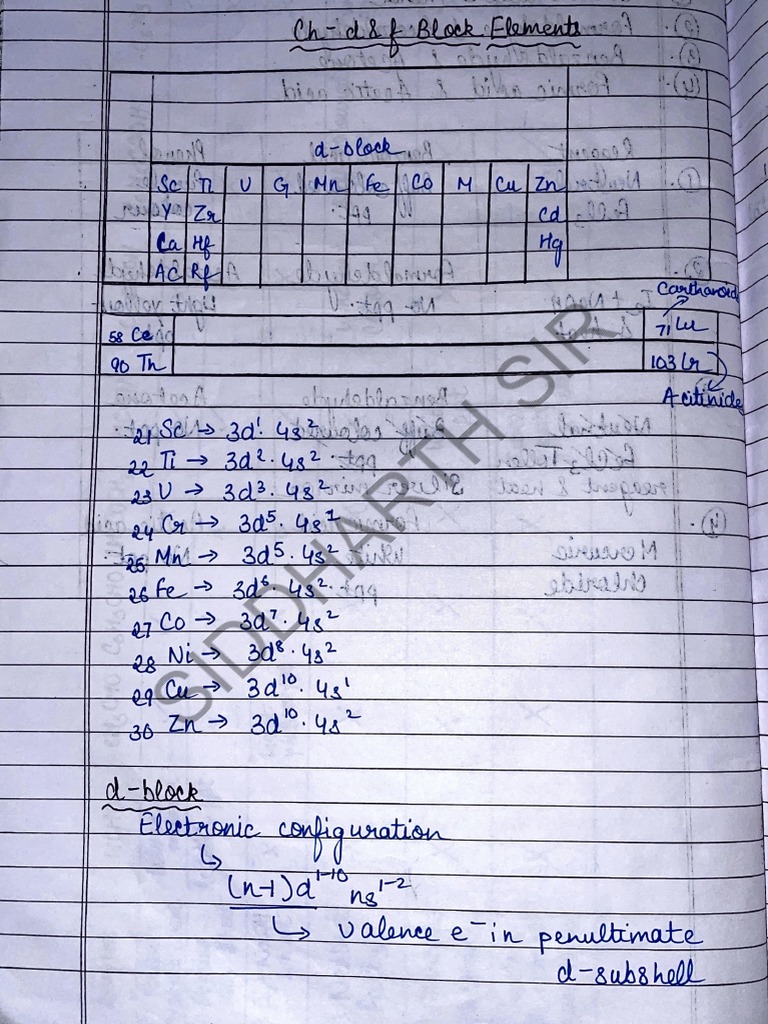 Ch-d & f Block Elements
d-block
Sc Ti V Cr Mn Fe Co Ni Cu Zn
Y Zr Cd
La Hf Hg
AC Rf
Lanthanoid
58 Ce 71 Lu
90 Th 103 Lr
Acitinide
21 Sc → 3d¹. 4s²
22 Ti → 3d². 4s²
23 V → 3d³. 4s²
24 Cr → 3d⁵. 4s¹
25 Mn → 3d⁵. 4s²
26 Fe → 3d⁶. 4s².
27 Co → 3d⁷. 4s²
28 Ni → 3d⁸. 4s²
29 Cu → 3d¹⁰. 4s¹
30 Zn → 3d¹⁰. 4s²
SIDDHARTH SIR
d-block
Electronic configuration
↳
(n-1)d¹⁻¹⁰ ns¹⁻²
↳ valence e⁻ in penultimate
d-subshell